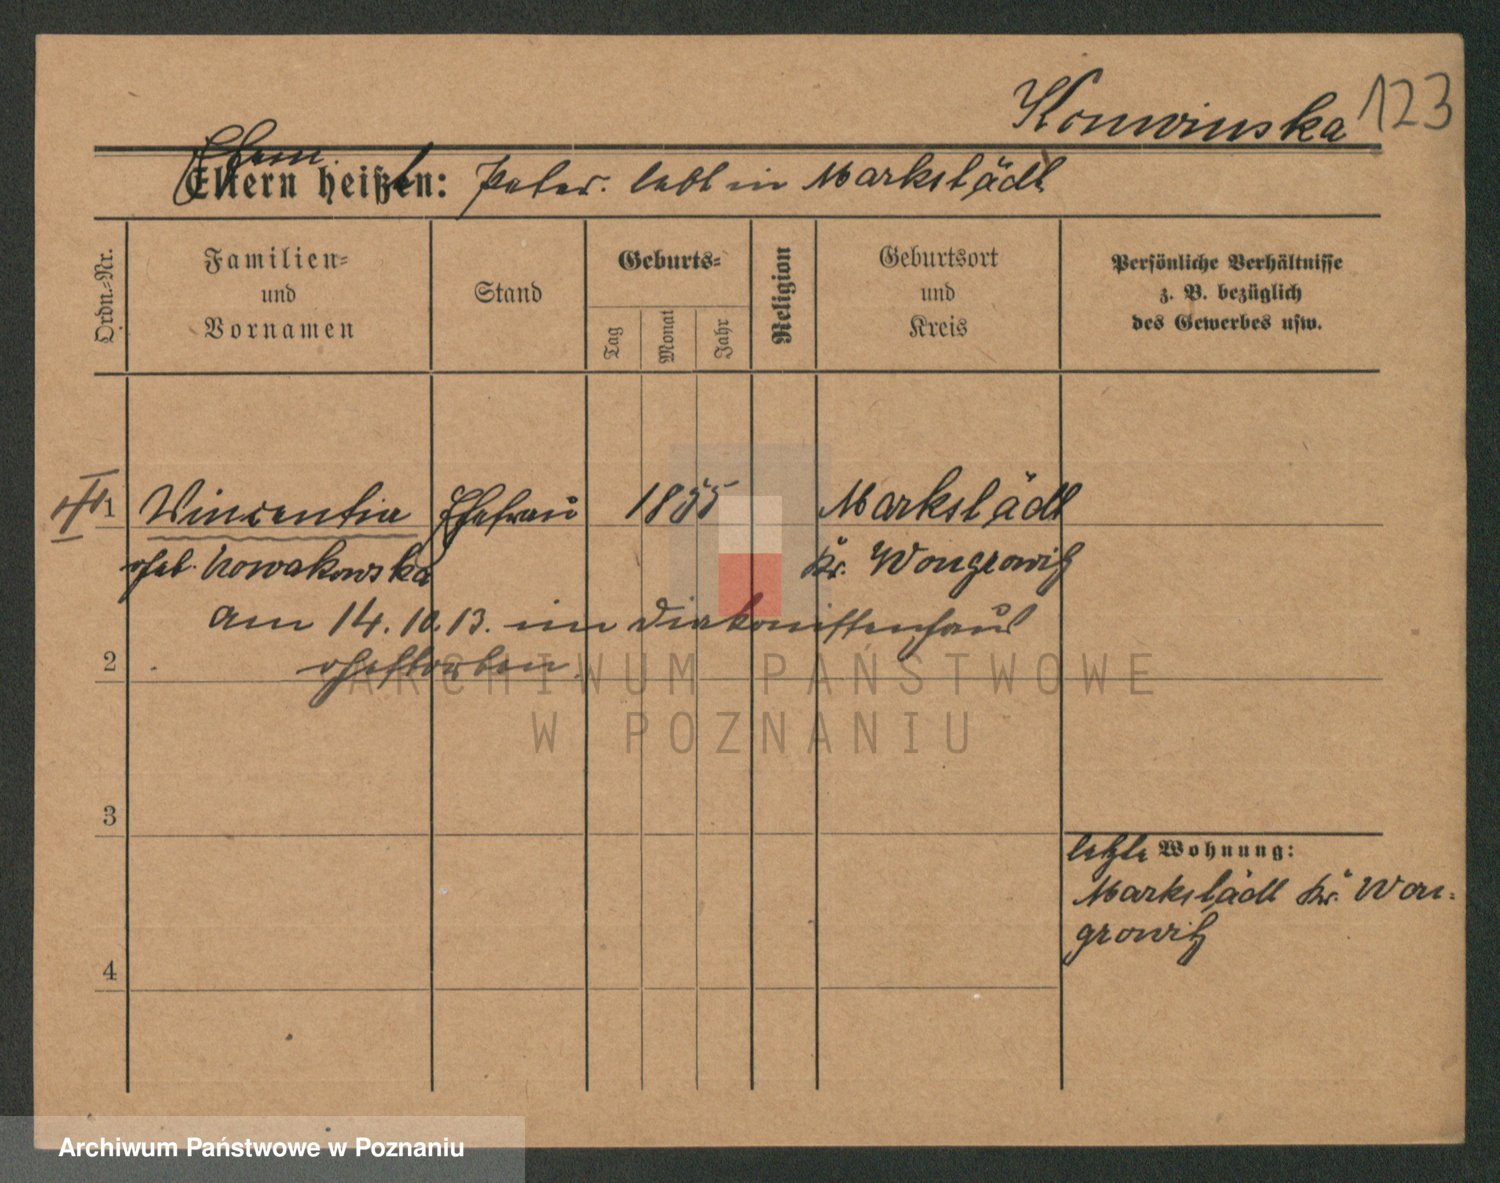 Konwinska 123
Ehem.
Eltern heißen: Peter. lebt in Markstädt
Ordn.-Nr.
Familien-
und
Vornamen
Stand
Geburts-
Tag
Monat
Jahr
Religion
Geburtsort
und
Kreis
Persönliche Verhältnisse
z. B. bezüglich
des Gewerbes usw.
1 Wincentia Ehefrau 1855 Markstädt
geb. Nowakowska Kr. Wongrowitz
am 14.10.13. im Diakonissenhaus
2 gestorben.
ARCHIWUM PAŃSTWOWE
W POZNANIU
3
letzte Wohnung:
Markstädt Kr. Won-
growitz
4
Archiwum Państwowe w Poznaniu